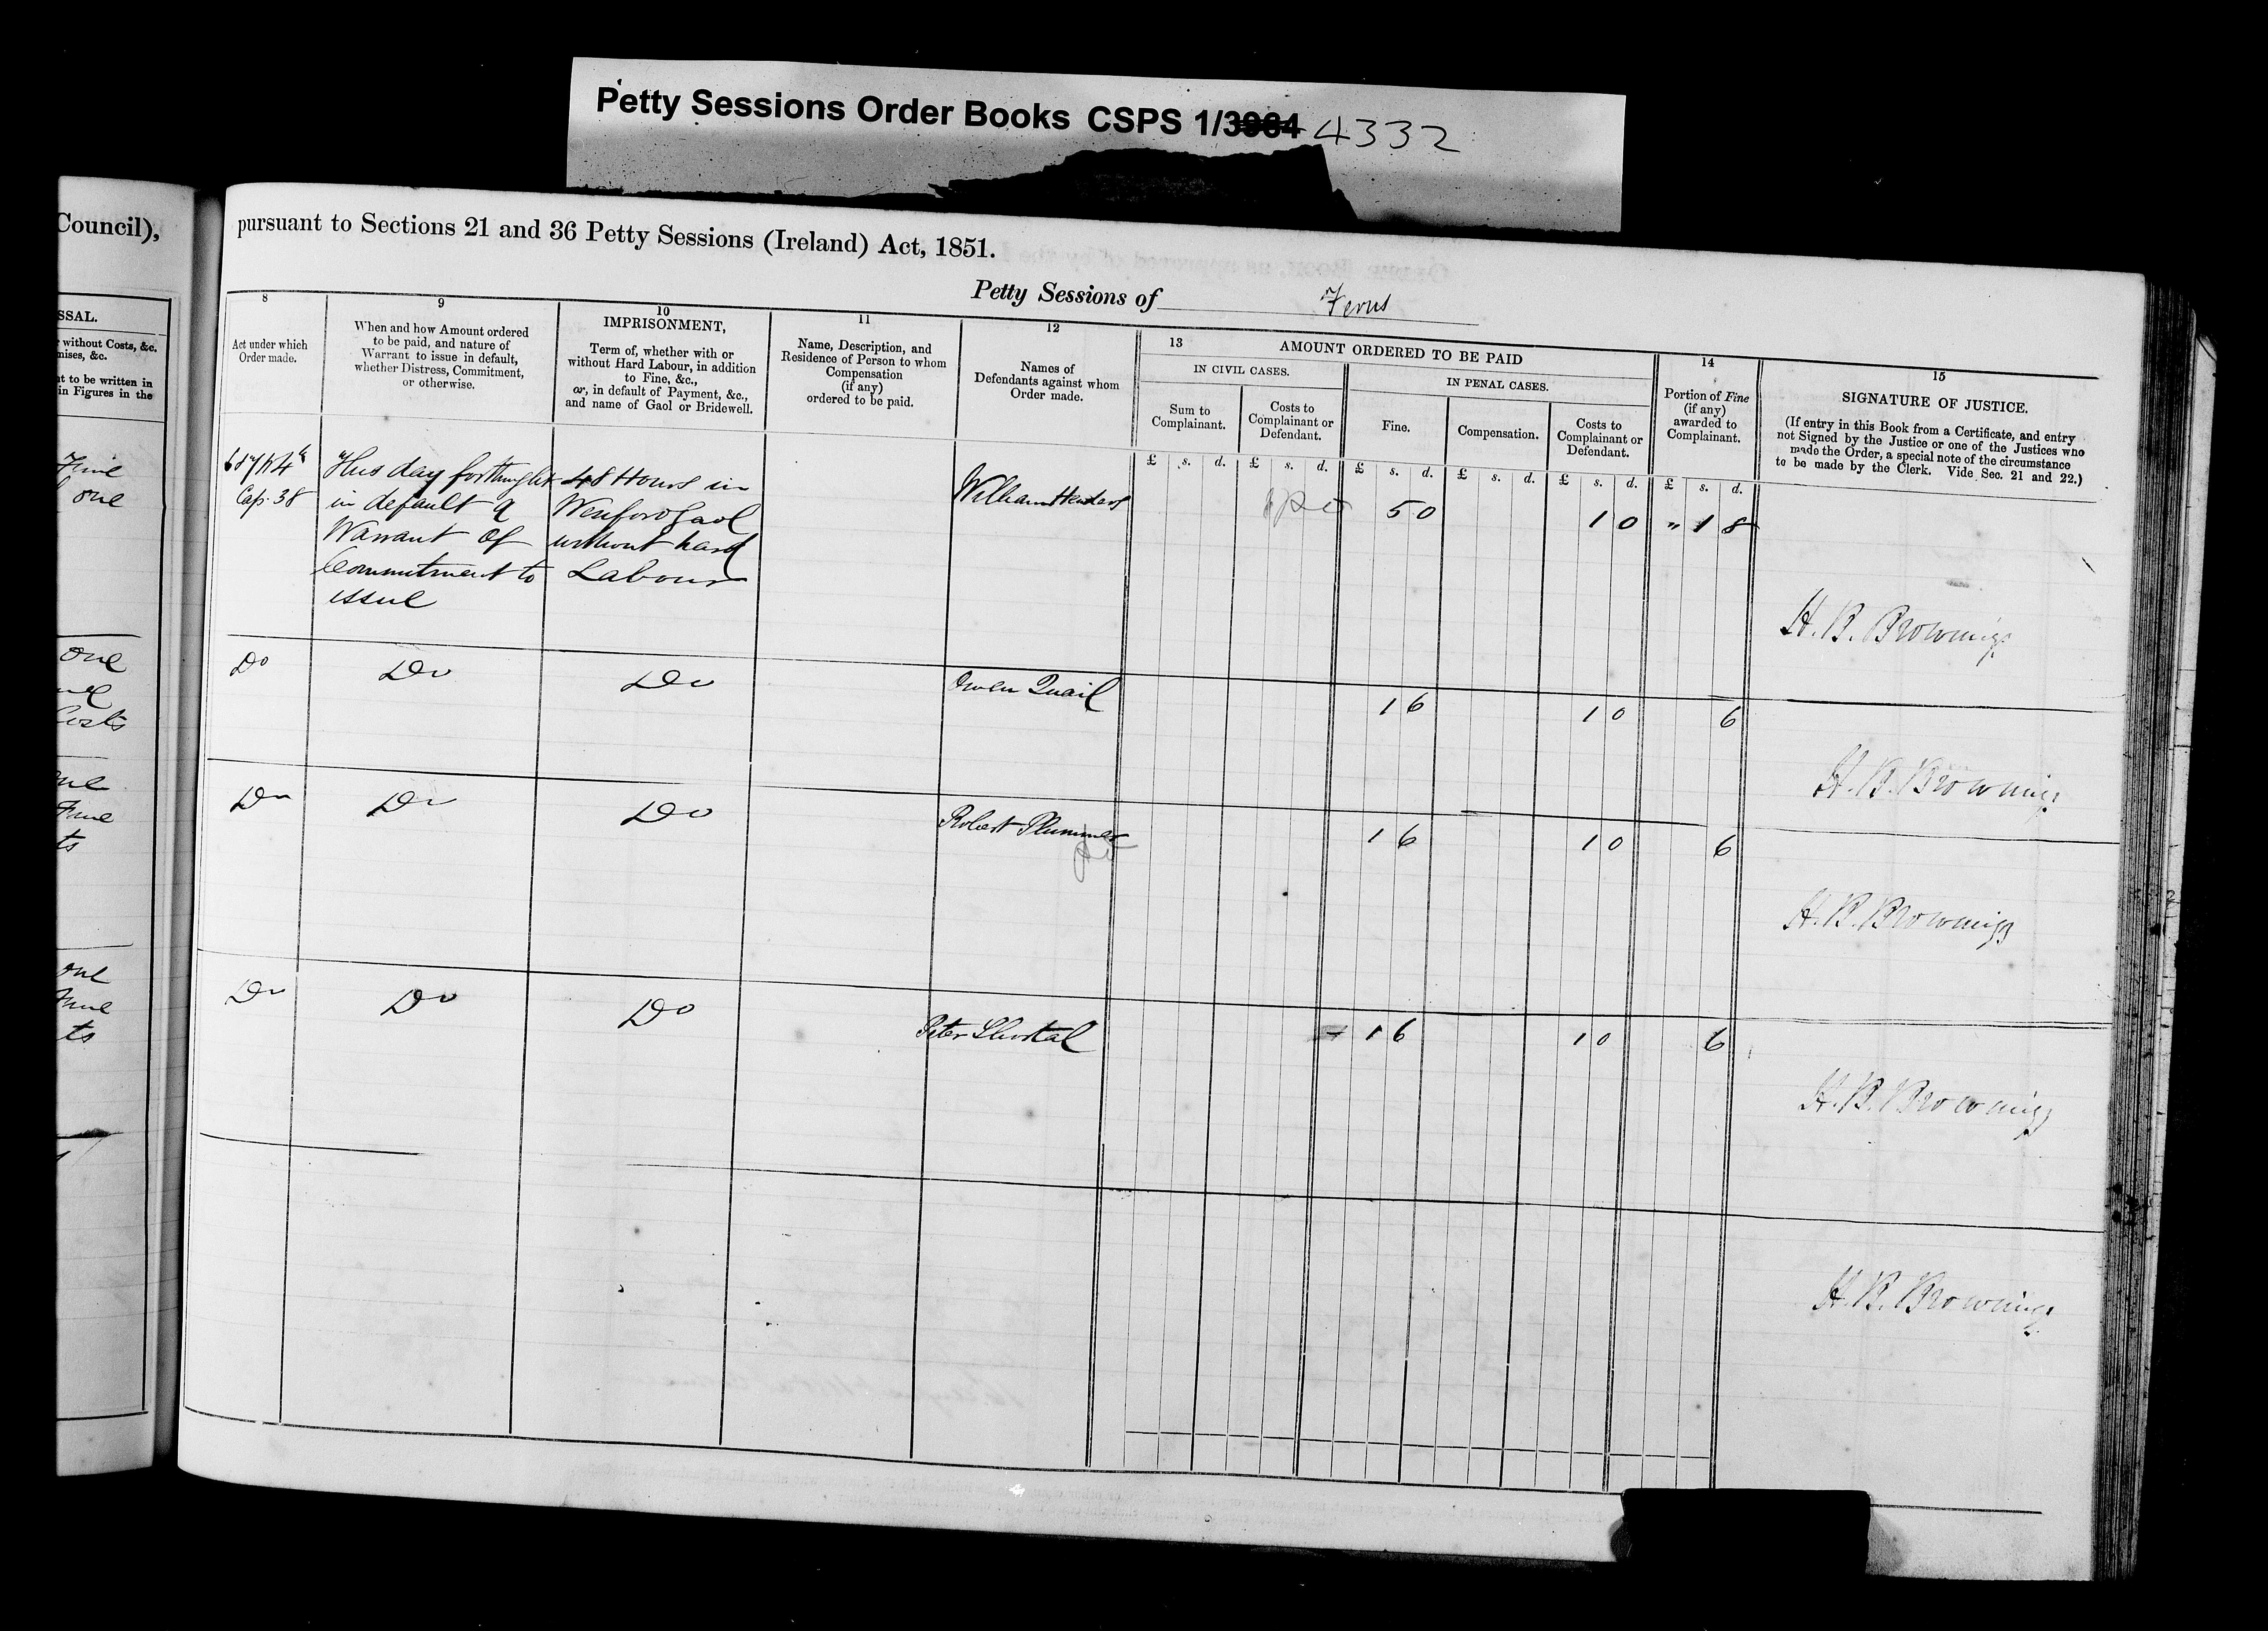 Petty Sessions Order Books CSPS 1/3984 4332
Council),
pursuant to Sections 21 and 36 Petty Sessions (Ireland) Act, 1851.
Petty Sessions of Ferns
SSAL.
without Costs, &c.
mises, &c.
nt to be written in
in Figures in the
8
Act under which
Order made.
9
When and how Amount ordered
to be paid, and nature of
Warrant to issue in default,
whether Distress, Commitment,
or otherwise.
10
IMPRISONMENT,
Term of, whether with or
without Hard Labour, in addition
to Fine, &c.,
or, in default of Payment, &c.,
and name of Gaol or Bridewell.
11
Name, Description, and
Residence of Person to whom
Compensation
(if any)
ordered to be paid.
12
Names of
Defendants against whom
Order made.
13
AMOUNT ORDERED TO BE PAID
IN CIVIL CASES.
IN PENAL CASES.
Sum to
Complainant.
Costs to
Complainant or
Defendant.
Fine.
Compensation.
Costs to
Complainant or
Defendant.
14
Portion of Fine
(if any)
awarded to
Complainant.
15
SIGNATURE OF JUSTICE.
(If entry in this Book from a Certificate, and entry
not Signed by the Justice or one of the Justices who
made the Order, a special note of the circumstance
to be made by the Clerk. Vide Sec. 21 and 22.)
£ s. d. £ s. d. £ s. d. £ s. d. £ s. d. £ s. d.
Fine
one
6 & 7 W 4th
Cap. 38
This day fortnight
in default a
Warrant of
Committment to
issue
48 Hours in
Wexford Gaol
without hard
Labour
William
5 0
1 0
" 1 8
H. B. Brownrigg
one
Costs
Do
Do
Do
Owen Quail
1 6
1 0
6
H. B. Brownrigg
Fine
ts
Do
Do
Do
Robert Plummer
1 6
1 0
6
H. B. Brownrigg
one
Fine
ts
Do
Do
Do
Peter
1 6
1 0
6
H. B. Brownrigg
H. B. Brownrigg